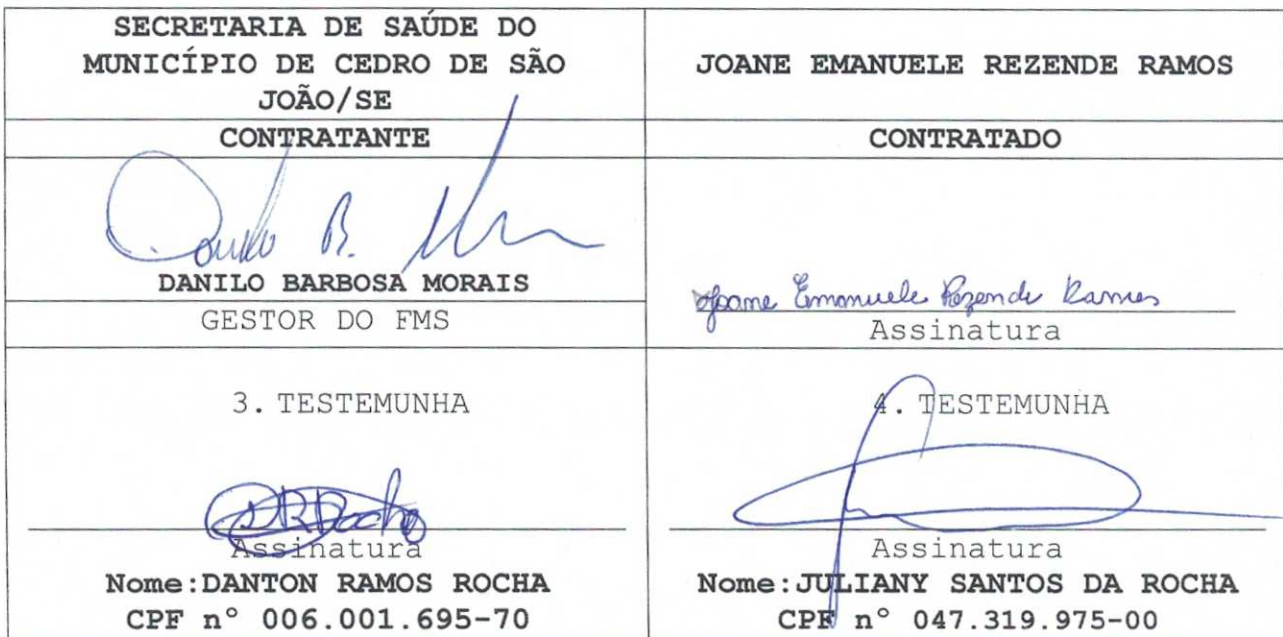 SECRETARIA DE SAÚDE DO
MUNICÍPIO DE CEDRO DE SÃO
JOÃO/SE
JOANE EMANUELE REZENDE RAMOS
CONTRATANTE
CONTRATADO
Danilo B.
DANILO BARBOSA MORAIS
GESTOR DO FMS
Joane Emanuele Rezende Ramos
Assinatura
3. TESTEMUNHA
4. TESTEMUNHA
DRRocha
Assinatura
Nome:DANTON RAMOS ROCHA
CPF n° 006.001.695-70
Assinatura
Nome:JULIANY SANTOS DA ROCHA
CPF n° 047.319.975-00